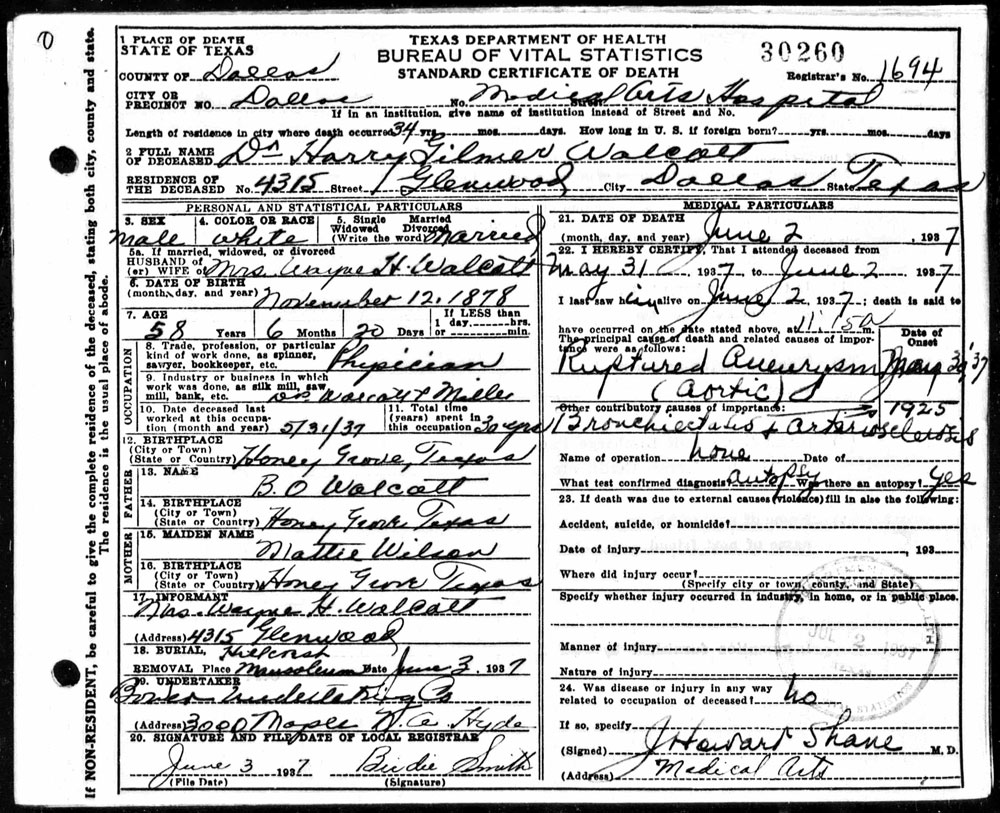 O
If NON-RESIDENT, be careful to give the complete residence of the deceased, stating both city, county and state.
The residence is the usual place of abode.
TEXAS DEPARTMENT OF HEALTH
BUREAU OF VITAL STATISTICS
STANDARD CERTIFICATE OF DEATH
30260
Registrar's No. 1694
1 PLACE OF DEATH
STATE OF TEXAS
COUNTY OF Dallas
CITY OR PRECINCT NO. Dallas No. Medical Arts Hospital Street
If in an institution, give name of institution instead of Street and No.
Length of residence in city where death occurred 34 yrs. mos. days. How long in U. S. if foreign born? yrs. mos. days
2 FULL NAME OF DECEASED Dr Harry Gilmer Walcott
RESIDENCE OF THE DECEASED No. 4315 Street Glenwood City Dallas State Texas
PERSONAL AND STATISTICAL PARTICULARS
3. SEX Male
4. COLOR OR RACE white
5. Single Married Widowed Divorced (Write the word) Married
5a. If married, widowed, or divorced
HUSBAND OF (or) WIFE OF Mrs. Wayne H. Walcott
6. DATE OF BIRTH (month, day, and year) November 12, 1878
7. AGE 58 Years 6 Months 20 Days If LESS than 1 day, hrs. or min.
OCCUPATION
8. Trade, profession, or particular kind of work done, as spinner, sawyer, bookkeeper, etc. Physician
9. Industry or business in which work was done, as silk mill, saw mill, bank, etc. Drs Walcott & Miller
10. Date deceased last worked at this occupation (month and year) 5/31/37
11. Total time (years) spent in this occupation 30 yrs
12. BIRTHPLACE (City or Town) (State or Country) Honey Grove, Texas
FATHER
13. NAME B. O Walcott
14. BIRTHPLACE (City or Town) (State or Country) Honey Grove Texas
MOTHER
15. MAIDEN NAME Mattie Wilson
16. BIRTHPLACE (City or Town) (State or Country) Honey Grove Texas
17. INFORMANT Mrs. Wayne H. Walcott
(Address) 4315 Glenwood
18. BURIAL, REMOVAL Place Hillcrest Mausoleum Date June 3, 1937
19. UNDERTAKER Undertaking Co
(Address) 3000 Maple Hyde
20. SIGNATURE AND FILE DATE OF LOCAL REGISTRAR
June 3 1937 Birdie Smith
(File Date) (Signature)
MEDICAL PARTICULARS
21. DATE OF DEATH (month, day, and year) June 2, 1937
22. I HEREBY CERTIFY, That I attended deceased from
May 31 1937, to June 2, 1937
I last saw him alive on June 2, 1937; death is said to
have occurred on the date stated above, at 11:50 m.
The principal cause of death and related causes of importance were as follows:
Date of Onset
Ruptured Aneurysm May 30, '37
(Aortic)
Other contributory causes of importance: 1925
Bronchiectasis & Arteriosclerosis
Name of operation none Date of
What test confirmed diagnosis? autopsy Was there an autopsy? yes
23. If death was due to external causes (violence) fill in also the following:
Accident, suicide, or homicide?
Date of injury , 193
Where did injury occur?
(Specify city or town, county, and State)
Specify whether injury occurred in industry, in home, or in public place.
Manner of injury
Nature of injury
JUL 2 1937
24. Was disease or injury in any way related to occupation of deceased? no
If so, specify
(Signed) J Howard Shane M. D.
(Address) Medical Arts